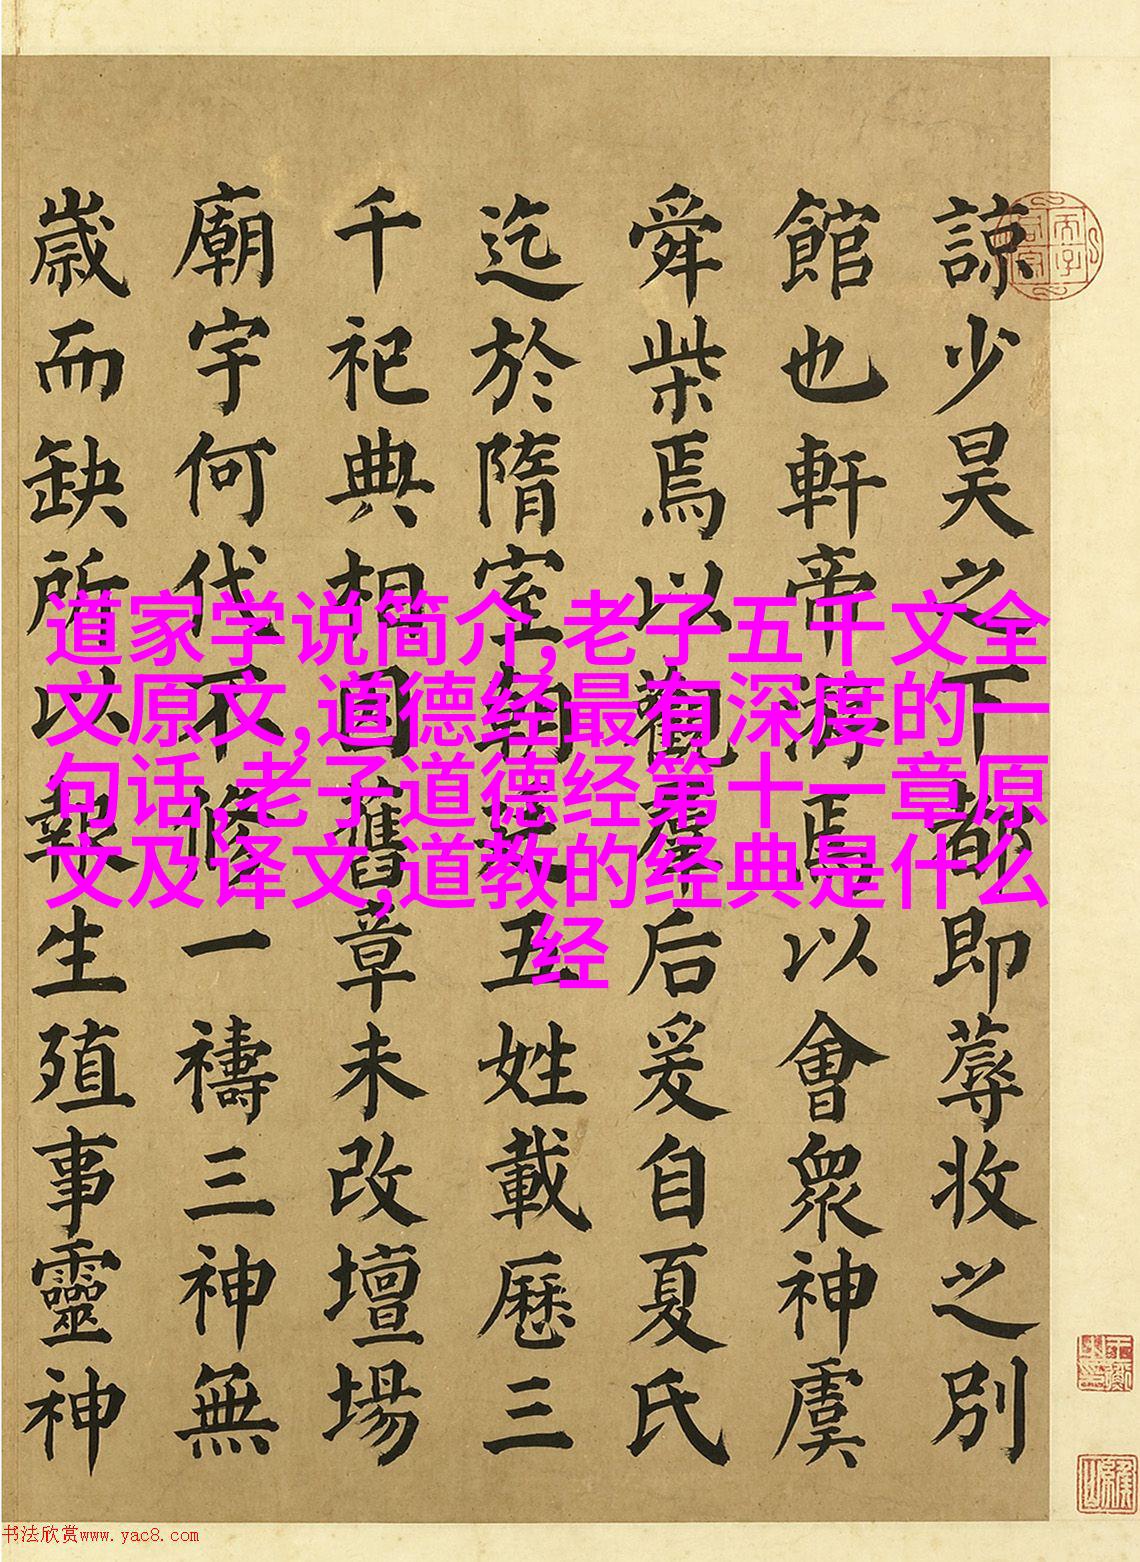 諒少昊之下都即蓐收之別
館也軒帝游焉以會衆神虞
舜柴焉以觀羣后爰自夏氏
迄於隋室五姓載歷三
千祀典相因舊章未改壇場
廟宇何代不修一禱三神無
歲而缺所以報生殖事靈神
道家学说简介,老子五千文全
文原文,道德经最有深度的一
句话,老子道德经第十一章原
文及译文,道教的经典是什么
经
书法欣赏www.yac8.com